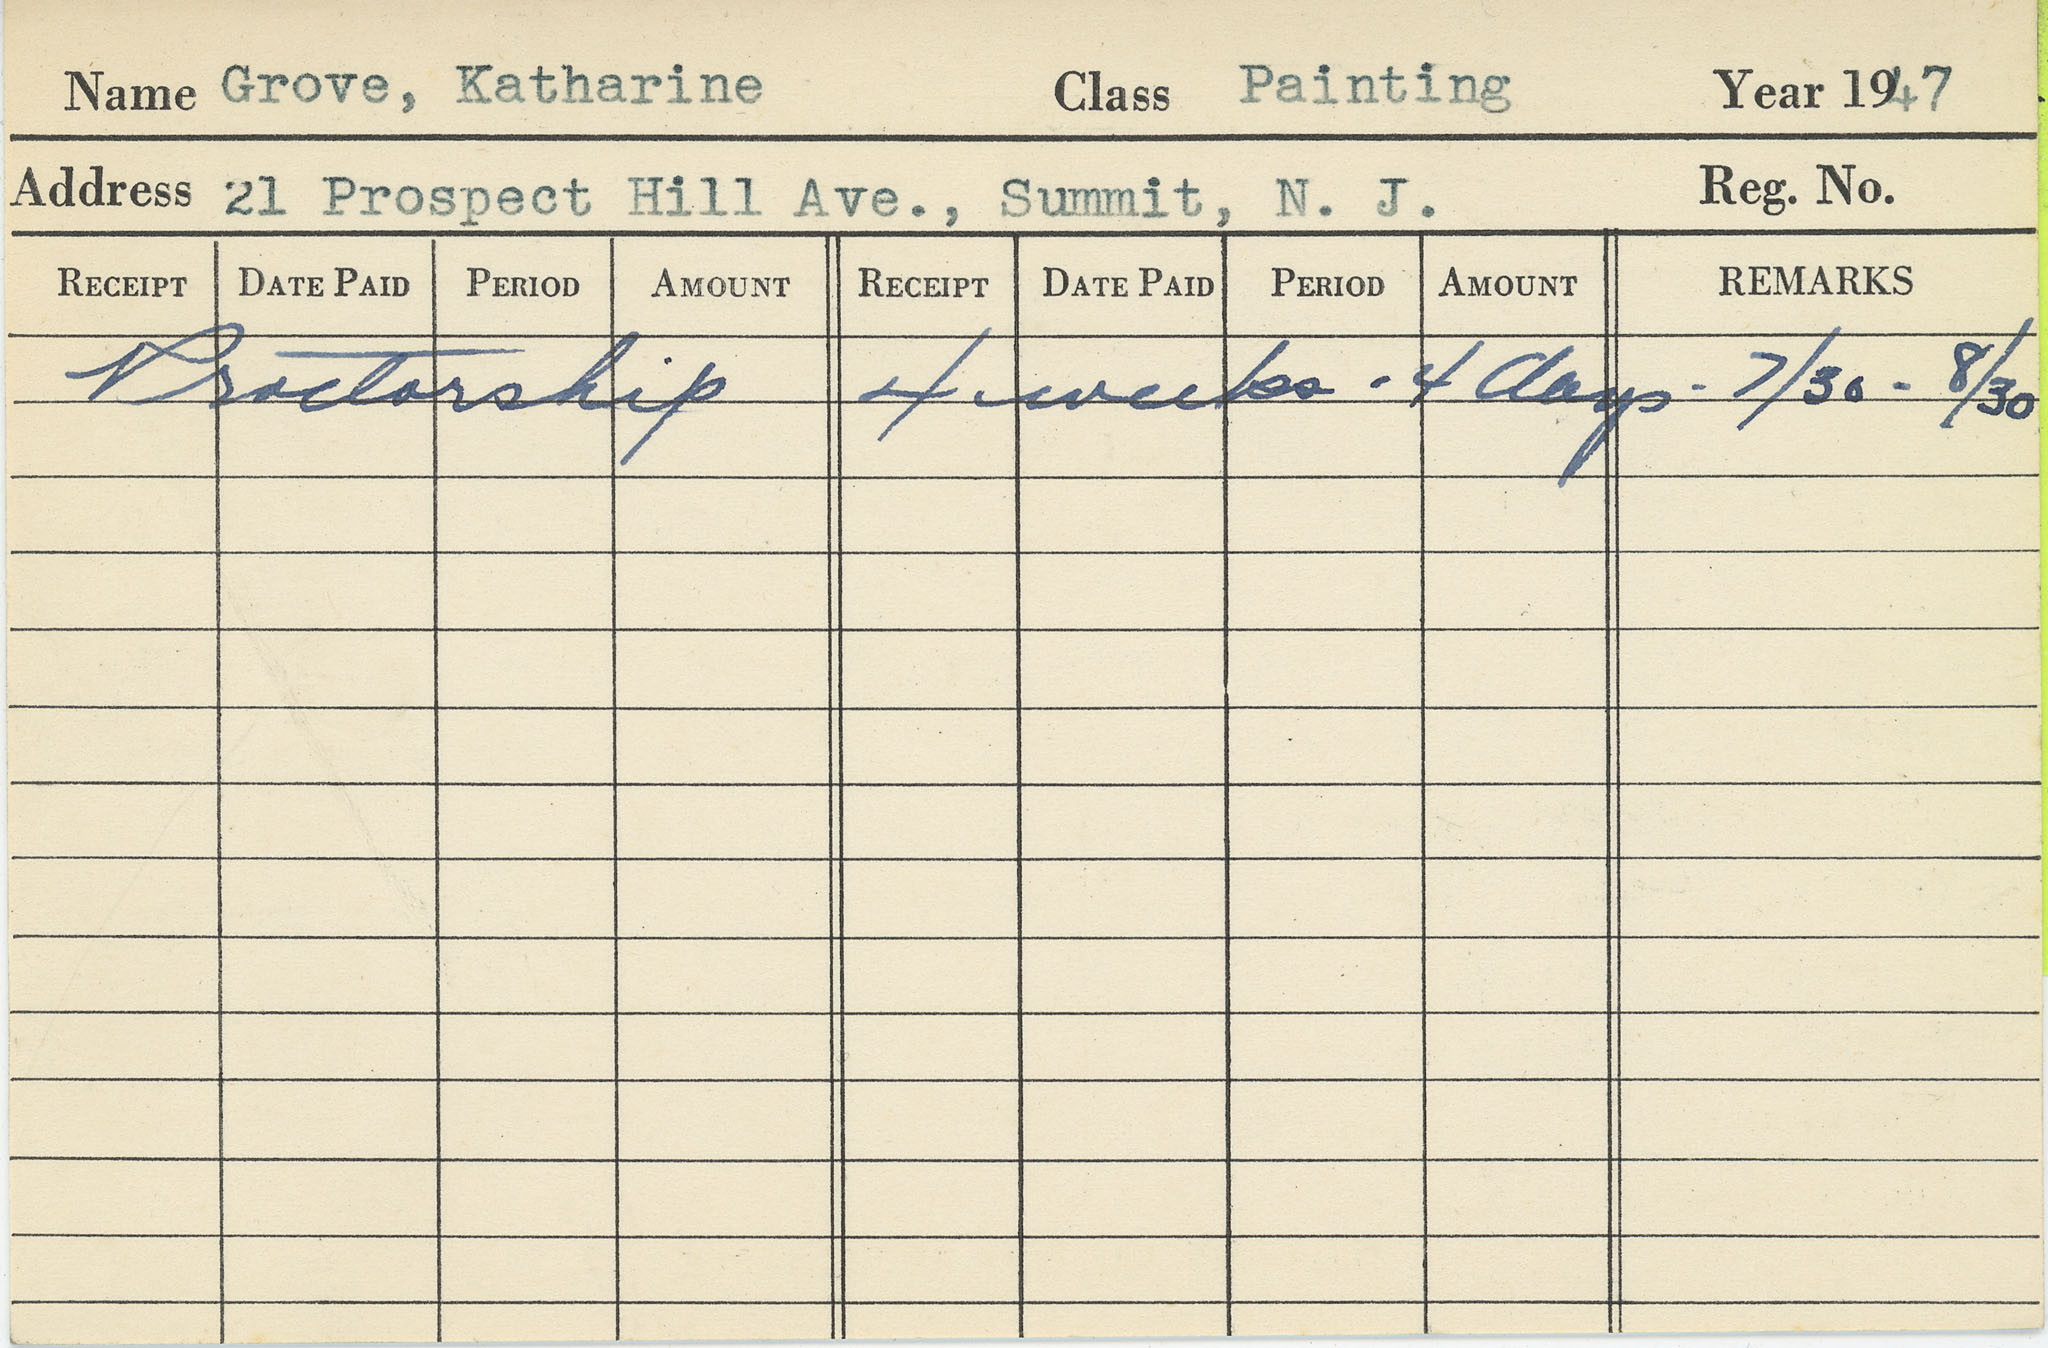 Name Grove, Katharine Class Painting Year 1947
Address 21 Prospect Hill Ave., Summit, N. J. Reg. No.
RECEIPT DATE PAID PERIOD AMOUNT RECEIPT DATE PAID PERIOD AMOUNT REMARKS
Proctorship 4 weeks - 4 days - 7/30 - 8/30